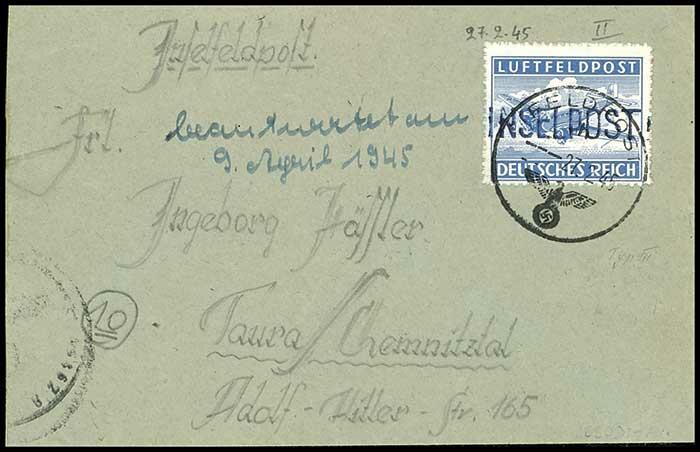 27.2.45 II
Inselfeldpost.
LUFTFELDPOST
INSELPOST
DEUTSCHES REICH
FELDPOST
27.2.45
Frl.
beantwortet am
9. April 1945
Ingeborg Häßler
Typ III
10
Taura/Chemnitztal
Adolf-Hitler-Str. 165